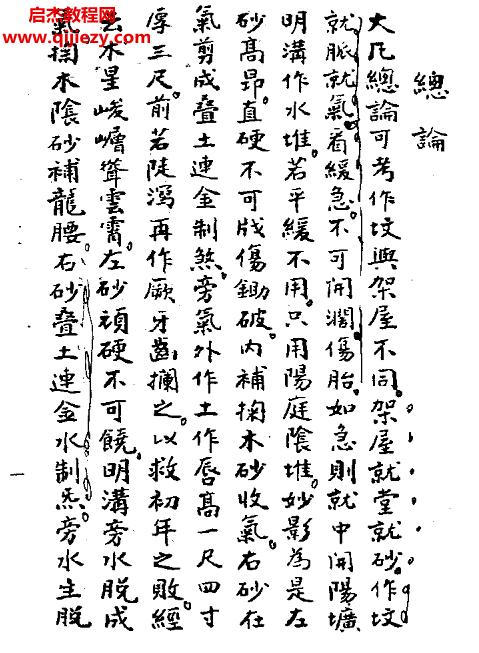 启杰教程网
www.qijiezy.com
總論
大凡總論可考作坟與架屋不同架屋就堂就砂作坟
就脈就氣看緩急不可開濶傷胎如急則就中開陽壙
明溝作水堆若平緩不用只用陽庭陰堆妙影為是左
砂高昂直硬不可戕傷鋤破内補掬木砂收氣右砂在
氣剪成叠土連金制煞旁氣外作土作唇高一尺四寸
厚三尺前若陡瀉再作厥牙齒攔之以救初年之敗經
云木星峻嶒聳雲霄左砂頑硬不可饒明溝旁水脱成
氣掬木陰砂補龍腰右砂叠土連金水制炁旁水生脱